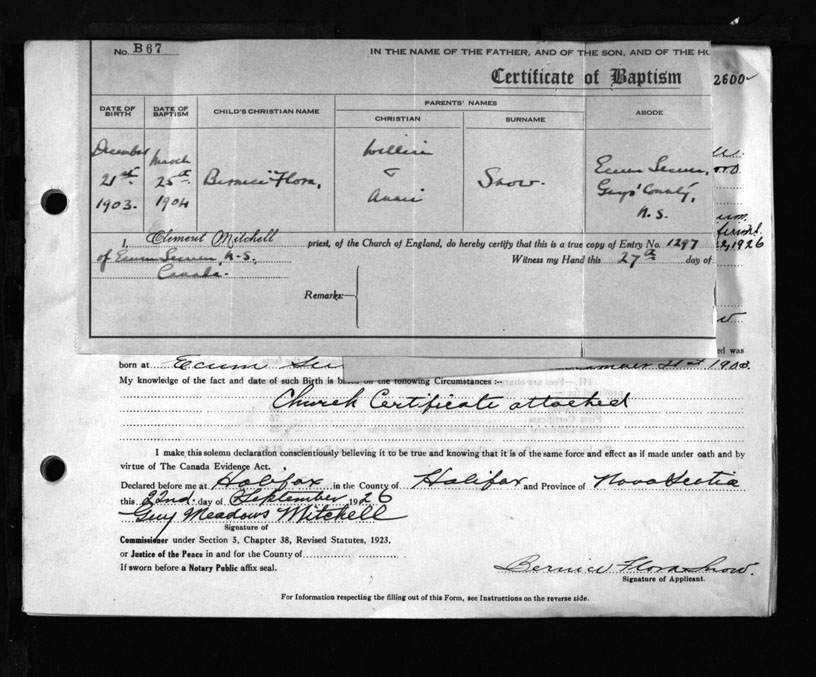 No. B67
IN THE NAME OF THE FATHER, AND OF THE SON, AND OF THE HO
Certificate of Baptism
2600
DATE OF BIRTH
DATE OF BAPTISM
CHILD'S CHRISTIAN NAME
PARENTS' NAMES
CHRISTIAN
SURNAME
ABODE
December 21st 1903.
March 25th 1904
Bernice Flora,
Willie & Annie
Snow.
Ecum Secum, Guys' County, N.S.
I, Clement Mitchell priest, of the Church of England, do hereby certify that this is a true copy of Entry No. 1297
of Ecum Secum, N.S. Canada.
Witness my Hand this 27th day of
Remarks:—
1926
ed was
born at Ecum Se 21st 1903.
My knowledge of the fact and date of such Birth is b on the following Circumstances :—
Church Certificate attached
I make this solemn declaration conscientiously believing it to be true and knowing that it is of the same force and effect as if made under oath and by
virtue of The Canada Evidence Act.
Declared before me at Halifax in the County of Halifax and Province of Nova Scotia
this 22nd day of September 1926
Guy Meadows Mitchell
Signature of
Commissioner under Section 5, Chapter 38, Revised Statutes, 1923,
or Justice of the Peace in and for the County of
If sworn before a Notary Public affix seal.
Bernice Flora Snow.
Signature of Applicant.
For Information respecting the filling out of this Form, see Instructions on the reverse side.